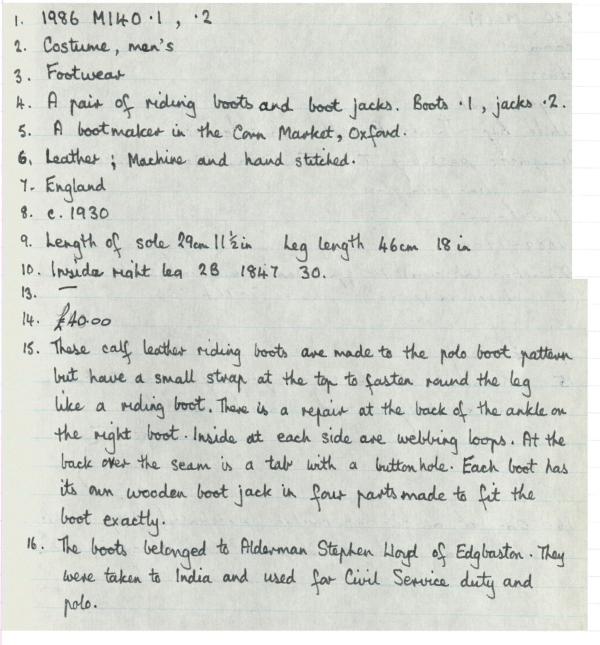 1. 1986 M140 .1, .2
2. Costume, men's
3. Footwear
4. A pair of riding boots and boot jacks. Boots .1, jacks .2.
5. A bootmaker in the Corn Market, Oxford.
6. Leather; Machine and hand stitched.
7. England
8. c. 1930
9. Length of sole 29cm 11½in Leg length 46cm 18in
10. Inside right leg 2B 1847 30.
13. —
14. £40.00
15. These calf leather riding boots are made to the polo boot pattern
but have a small strap at the top to fasten round the leg
like a riding boot. There is a repair at the back of the ankle on
the right boot. Inside at each side are webbing loops. At the
back over the seam is a tab with a buttonhole. Each boot has
its own wooden boot jack in four parts made to fit the
boot exactly.
16. The boots belonged to Alderman Stephen Lloyd of Edgbaston. They
were taken to India and used for Civil Service duty and
polo.